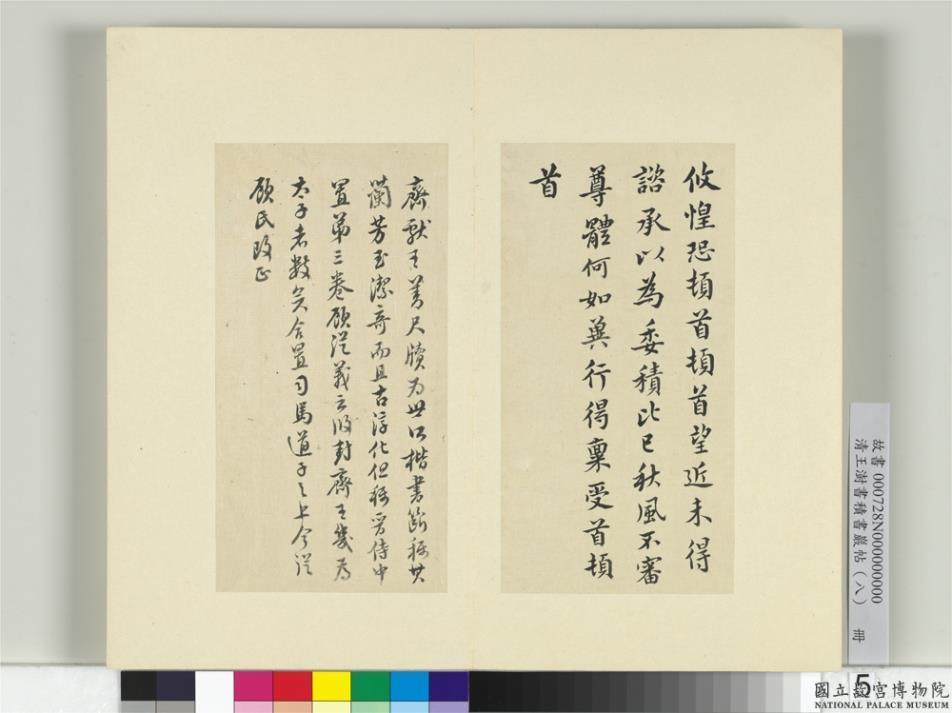 攸惶恐頓首頓首望近未得
諮承以為委積比已秋風不審
尊體何如冀行得稟受首頓
首
齊獻王善尺牘為世所楷書斷稱其
蘭芳玉潔奇而且古淳化但稱晉侍中
置第三卷顧從義云攸封齊王幾為
太子者數矣合置司馬道子之上今從
顧氏改正
故書000728N000000000
清王澍書積書巖帖(八) 冊
5
國立故宮博物院
NATIONAL PALACE MUSEUM